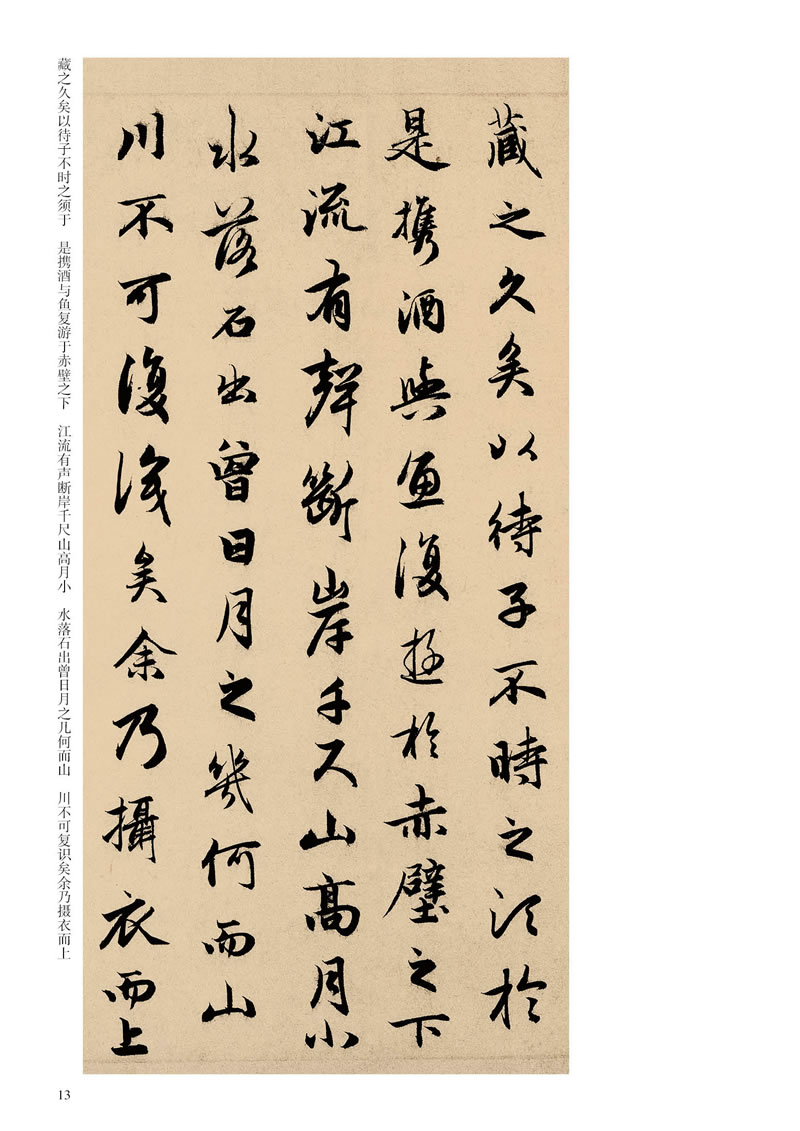 藏之久矣以待子不時之須於
是攜酒與魚復遊於赤壁之下
江流有聲斷岸千尺山高月小
水落石出曾日月之幾何而山
川不可復識矣余乃攝衣而上
藏之久矣以待子不时之须于 是携酒与鱼复游于赤壁之下 江流有声断岸千尺山高月小 水落石出曾日月之几何而山 川不可复识矣余乃摄衣而上
13